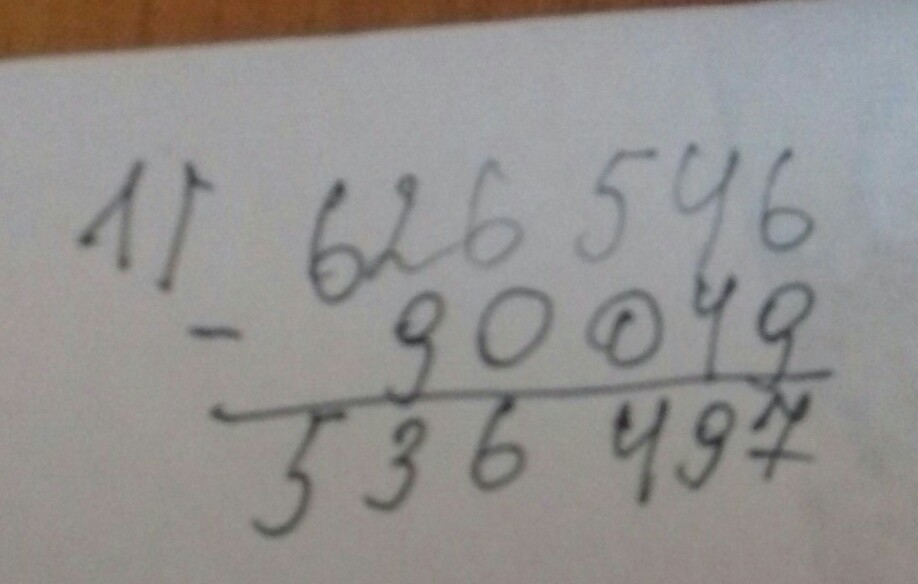 1) 626 546
- 90 049
536 497